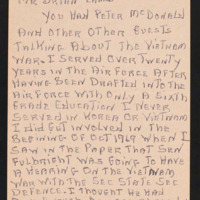 MR BRIAN LAMB
YOU HAD PETER MCDONALD
AND OTHER OTHER GUESTS
TALKING ABOUT THE VIETNAM
WAR. I SERVED OVER TWENTY
YEARS IN THE AIR FORCE AFTER
HAVING BEEN DRAFTED INTO THE
AIR FORCE WITH ONLY A SIXTH
GRADE EDUCATION I NEVER
SERVED IN KOREA OR VIETNAM
I DID GET INVOLVED IN THE
BEGINING OF OCT 1969 WHEN I
SAW IN THE PAPER THAT SEN
FULBRIGHT WAS GOING TO HAVE
A HEARING ON THE VIETNAM
WAR WITH THE SEC STATE SEC
DEFENCE. I THOUGHT HE HAD